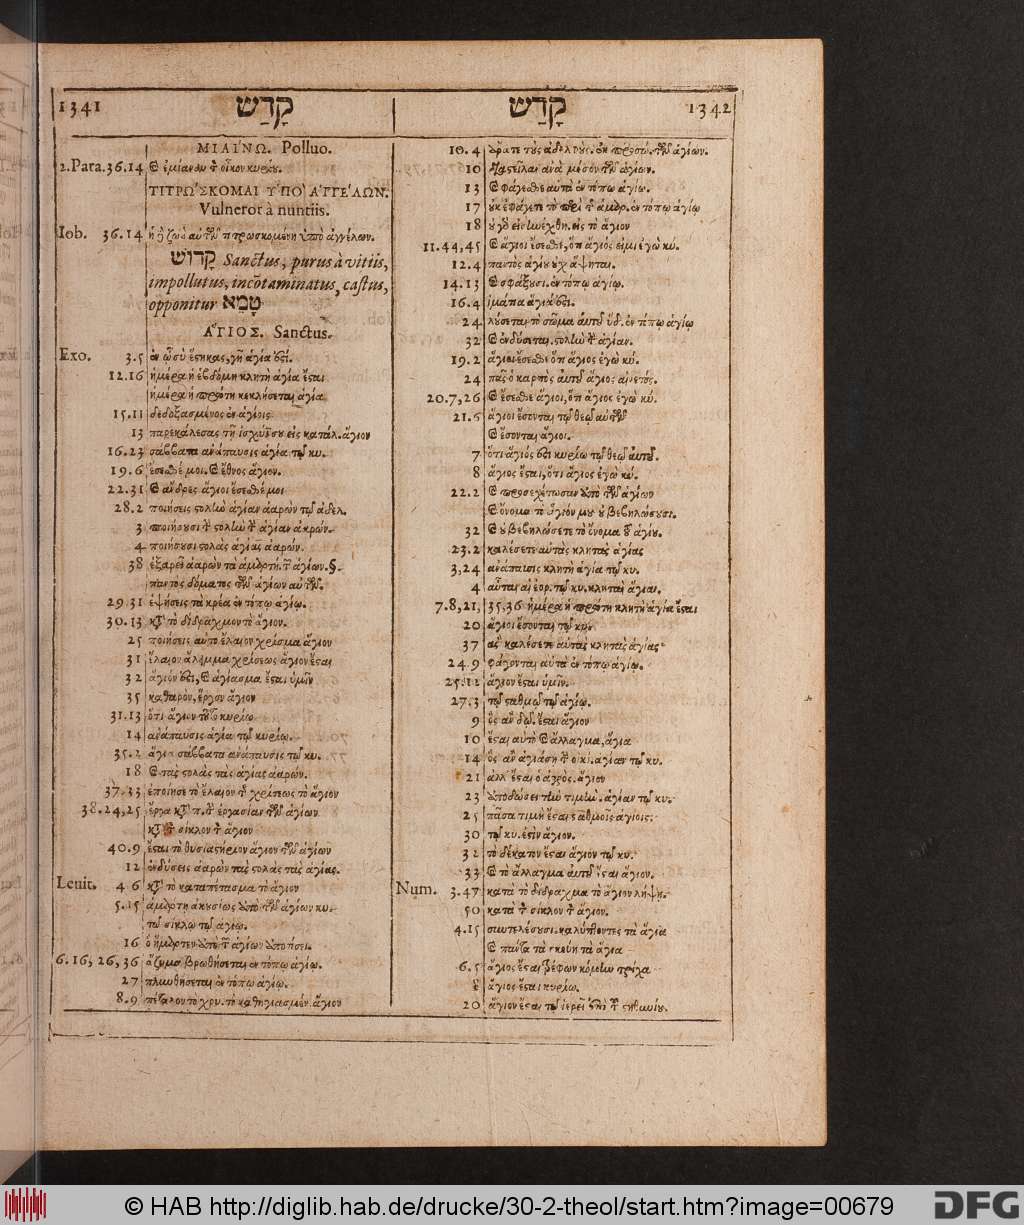 1341
קָדַשׁ
ΜΙΑΙΝΩ. Polluo.
2.Para.36.14 ἐμίαναν τ̀ οἶκον κυρίου.
ΤΙΤΡΩΣΚΟΜΑΙ ΥΠΟ ΑΓΓΕΛΩΝ.
Vulneror à nuntiis.
Iob. 36.14 ὑπὸ ἀγγέλων.
קָדוֹשׁ Sanctus, purus à vitiis,
impollutus, incōtaminatus, castus,
opponitur טָמֵא
ΑΓΙΟΣ. Sanctus.
Exo. 3.5 ἕστηκας, γῆ ἁγία ἐστί.
12.16 ἡμέρα ἡ ἑβδόμη κλητὴ ἁγία ἔσται
ἡμέρα ἡ πρώτη κεκλήσεται ἁγία
15.11 δεδοξασμένος ἐν ἁγίοις
13 παρεκάλεσας τῇ ἰσχύϊ σου εἰς κατάλ. ἅγιον
16.23 σάββατα ἀνάπαυσις ἁγία τῷ κυ.
19.6 ἔσεσθέ μοι. ἔθνος ἅγιον.
22.31 ἄνδρες ἅγιοι ἔσεσθέ μοι
28.2 ποιήσεις στολὴν ἁγίαν ἀαρὼν τῷ ἀδελ.
3 ποιήσουσι τ̀ στολὴν τ̀ ἁγίαν ἀαρών.
4 ποιήσουσι στολὰς ἁγίας ἀαρών.
38 ἐξαρεῖ ἀαρὼν τὰ ἁμαρτή. τ̃ ἁγίων. §.
παντὸς δόματος τῶν ἁγίων αὐτῶν.
29.31 ἑψήσεις τὰ κρέα ἐν τόπῳ ἁγίῳ.
30.13 κτ̀ τὸ δίδραχμον τὸ ἅγιον.
25 ποιήσεις αὐτὸ ἔλαιον χρίσμα ἅγιον
31 ἔλαιον ἄλειμμα χρίσεως ἅγιον ἔσται
32 ἅγιόν ἐστι, ἁγίασμα ἔσται ὑμῖν
35 καθαρὸν, ἔργον ἅγιον
31.13 ὅτι ἅγιον τοῦτο κυρίῳ
14 ἀνάπαυσις ἁγία τῷ κυρίῳ.
35.2 ἅγια σάββατα ἀνάπαυσις τῷ κυ.
18 τὰς στολὰς τὰς ἁγίας ἀαρών.
37.33 ἐποίησε τὸ ἔλαιον τ̃ χρίσεως τὸ ἅγιον
38.24,25 ἔργα κτ̀ π. τ̀ ἐργασίαν τῶν ἁγίων
κτ̀ τ̀ σίκλον τ̀ ἅγιον
40.9 ἔσται τὸ θυσιαστήριον ἅγιον τῶν ἁγίων
12 ἐνδύσεις ἀαρὼν τὰς στολὰς τὰς ἁγίας.
Leuit. 4 6 κτ̀ τὸ καταπέτασμα τὸ ἅγιον
5.15 ἁμάρτῃ ἀκουσίως ἀπὸ τῶν ἁγίων κυ.
τῷ σίκλῳ τῷ ἁγίῳ.
16 ὃ ἥμαρτεν ἀπὸ τ̃ ἁγίων ἀποτίσει.
6.16,26,36 ἄζυμα βρωθήσεται ἐν τόπῳ ἁγίῳ.
27 πλυθήσεται ἐν τόπῳ ἁγίῳ.
8.9 πέταλον τὸ χρυ. τὸ καθηγιασμέν. ἅγιον
קָדַשׁ
1342
10.4 ἄρατε τοὺς ἀδελφοὺς. ἐκ προσώ. τῶν ἁγίων.
10 διαστεῖλαι ἀνὰ μέσον τῶν ἁγίων.
13 φάγεσθε αὐτὰ ἐν τόπῳ ἁγίῳ.
17 οὐκ ἐφάγετε τὸ περὶ τ̃ ἁμαρ. ἐν τόπῳ ἁγίῳ
18 εἰς τὸ ἅγιον
11.44,45 ἅγιοι ἔσεσθε, ὅτι ἅγιός εἰμι ἐγὼ κύ.
12.4 παντὸς ἁγίου οὐχ ἅψηται.
14.13 σφάξουσι. ἐν τόπῳ ἁγίῳ.
16.4 ἱμάτια ἅγιά ἐστι.
24 λούσεται τὸ σῶμα αὐτοῦ ὕδ. ἐν τόπῳ ἁγίῳ
32 ἐνδύσεται. στολὴν τ̀ ἁγίαν.
19.2 ἅγιοι ἔσεσθε ὅτι ἅγιος ἐγὼ κύ.
24 πᾶς ὁ καρπὸς αὐτοῦ ἅγιος αἰνετός.
20.7,26 ἔσεσθε ἅγιοι, ὅτι ἅγιος ἐγὼ κύ.
21.6 ἅγιοι ἔσονται τῷ θεῷ αὐτῶν
ἔσονται ἅγιοι.
7 ὅτι ἅγιός ἐστι κυρίῳ τῷ θεῷ αὐτοῦ.
8 ἅγιος ἔσται, ὅτι ἅγιος ἐγὼ κύ.
22.2 προσεχέτωσαν ἀπὸ τῶν ἁγίων
ὄνομα τὸ ἅγιόν μου οὐ βεβηλώσουσι.
32 οὐ βεβηλώσετε τὸ ὄνομα τοῦ ἁγίου.
23.2 καλέσετε αὐτὰς κλητὰς ἁγίας
3,24 ἀνάπαυσις κλητὴ ἁγία τῷ κυ.
4 αὗται αἱ ἑορ. τῷ κυ. κληταὶ ἅγιαι.
7.8,21, 35,36 ἡμέρα ἡ πρώτη κλητὴ ἁγία ἔσται
20 ἅγιοι ἔσονται τῷ κυ.
37 ἃς καλέσετε αὐτὰς κλητὰς ἁγίας
24.9 φάγονται αὐτὰ ἐν τόπῳ ἁγίῳ.
25.12 ἅγιον ἔσται ὑμῖν.
27.3 τῷ σταθμῷ τῷ ἁγίῳ.
9 ὃς ἂν δῷ. ἔσται ἅγιον
10 ἔσται αὐτὸ ἄλλαγμα, ἅγια
14 ὃς ἂν ἁγιάσῃ τ̀ οἰκί. ἁγίαν τῷ κυ.
21 ἀλλ' ἔσται ὁ ἀγρὸς. ἅγιον
23 ἀποδώσει τὴν τιμὴν. ἁγίαν τῷ κυ.
25 πᾶσα τιμὴ ἔσται σταθμοῖς ἁγίοις.
30 τῷ κυ. ἐστὶν ἅγιον.
32 τὸ δέκατον ἔσται ἅγιον τῷ κυ.
33 τὸ ἄλλαγμα αὐτοῦ ἔσται ἅγιον.
Num. 3.47 κατὰ τὸ δίδραχμα τὸ ἅγιον λήψῃ.
50 κατὰ τ̀ σίκλον τ̀ ἅγιον.
4.15 συντελέσουσι. καλύπτοντες τὰ ἅγια
πάντα τὰ σκεύη τὰ ἅγια
6.5 ἅγιος ἔσται τρέφων κόμην τρίχα
8 ἅγιος ἔσται κυρίῳ.
20 ἅγιον ἔσται τῷ ἱερεῖ ἐπὶ τ̃ στηθυνίου.
© HAB http://diglib.hab.de/drucke/30-2-theol/start.htm?image=00679
DFG